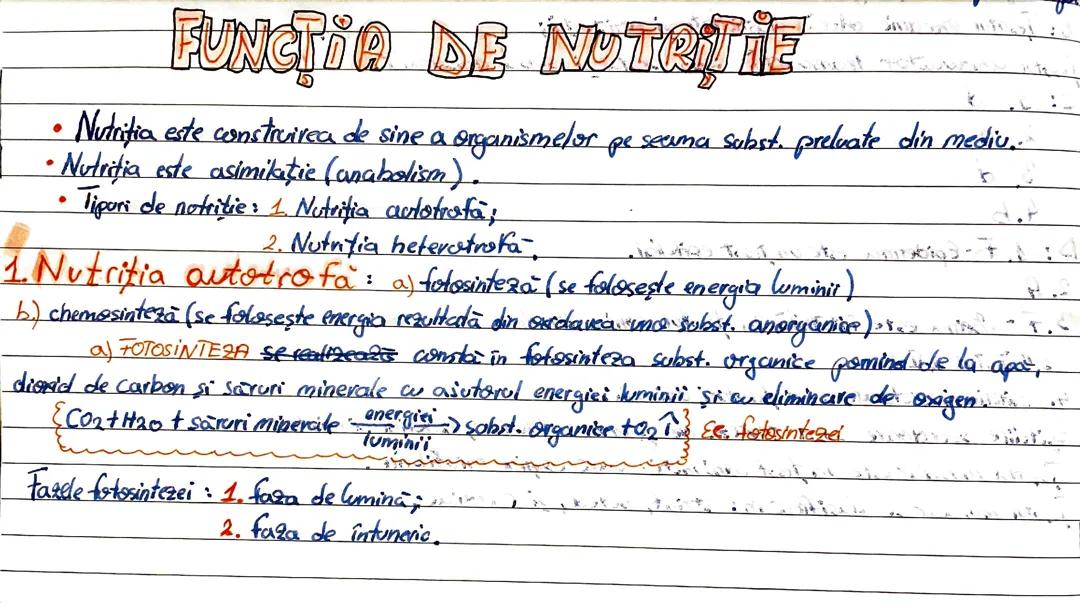 FUNCȚIA DE NUTRIȚIE
• Nutriția este construirea de sine a organismelor pe seama subst. preluate din mediu.
• Nutriția este asimilație (anabolism).
• Tipuri de nutriție: 1. Nutriția autotrofă;
2. Nutriția heterotrofă.
1. Nutriția autotrofă: a) fotosinteză (se folosește energia luminii)
b.) chemosinteză (se folosește energia rezultată din oxidarea unor subst. anorganice).
a) FOTOSINTEZA se realizează constă în fotosinteza subst. organice pornind de la apă,
dioxid de carbon și săruri minerale cu ajutorul energiei luminii și cu eliminare de oxigen.
{CO2+H2O + săruri minerale energiei luminii → subst. organice + O2↑} Ec. fotosintezei
Fazele fotosintezei: 1. faza de lumină;
2. faza de întuneric.